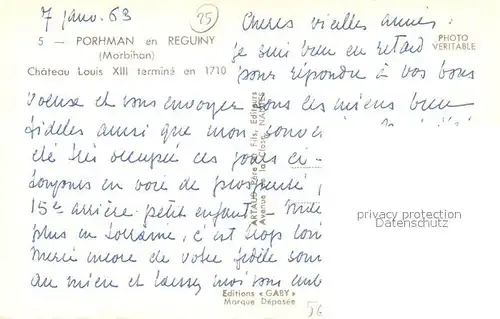 7 janv. 63
75
Chères vieilles amies.
5 — PORHMAN en REGUINY
(Morbihan)
Château Louis XIII terminé en 1710
PHOTO
VERITABLE
je suis bien en retard
pour répondre à vos bons
voeux et vous envoyer tous les miens bien
fidèles ainsi que mon
été très occupée ces jours ci
toujours en voie de prospérité,
15e arrière petit enfant
plus en Lorraine, c'est trop loin
Merci encore de votre fidèle
au mieux et laissez moi vous
ARTAUD Père et Fils, Editeurs
Avenue de la Close, NANTES
privacy protection
Datenschutz
Editions « GABY »
Marque Déposée
56